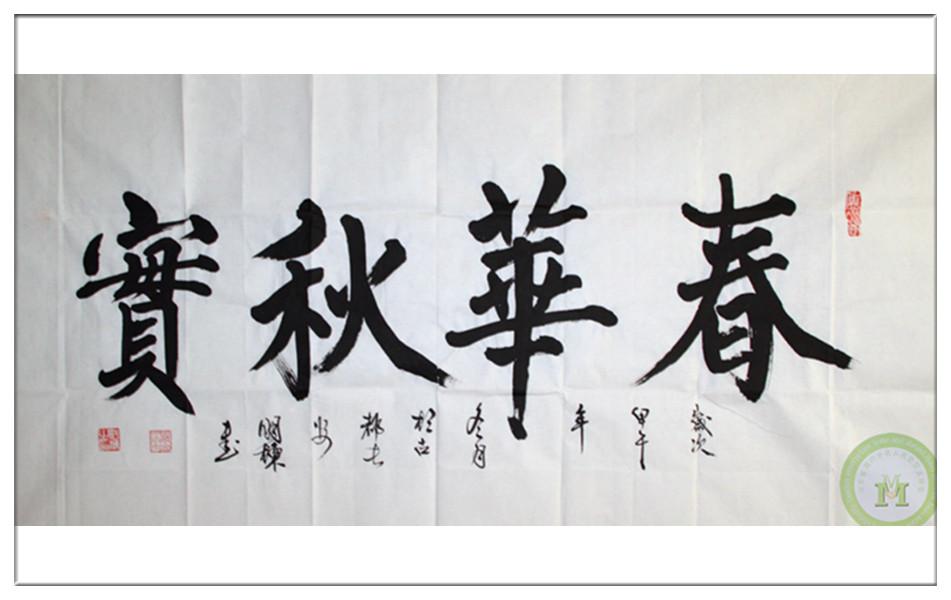 春華秋實
歲次甲午年冬月於古都長安明棟書